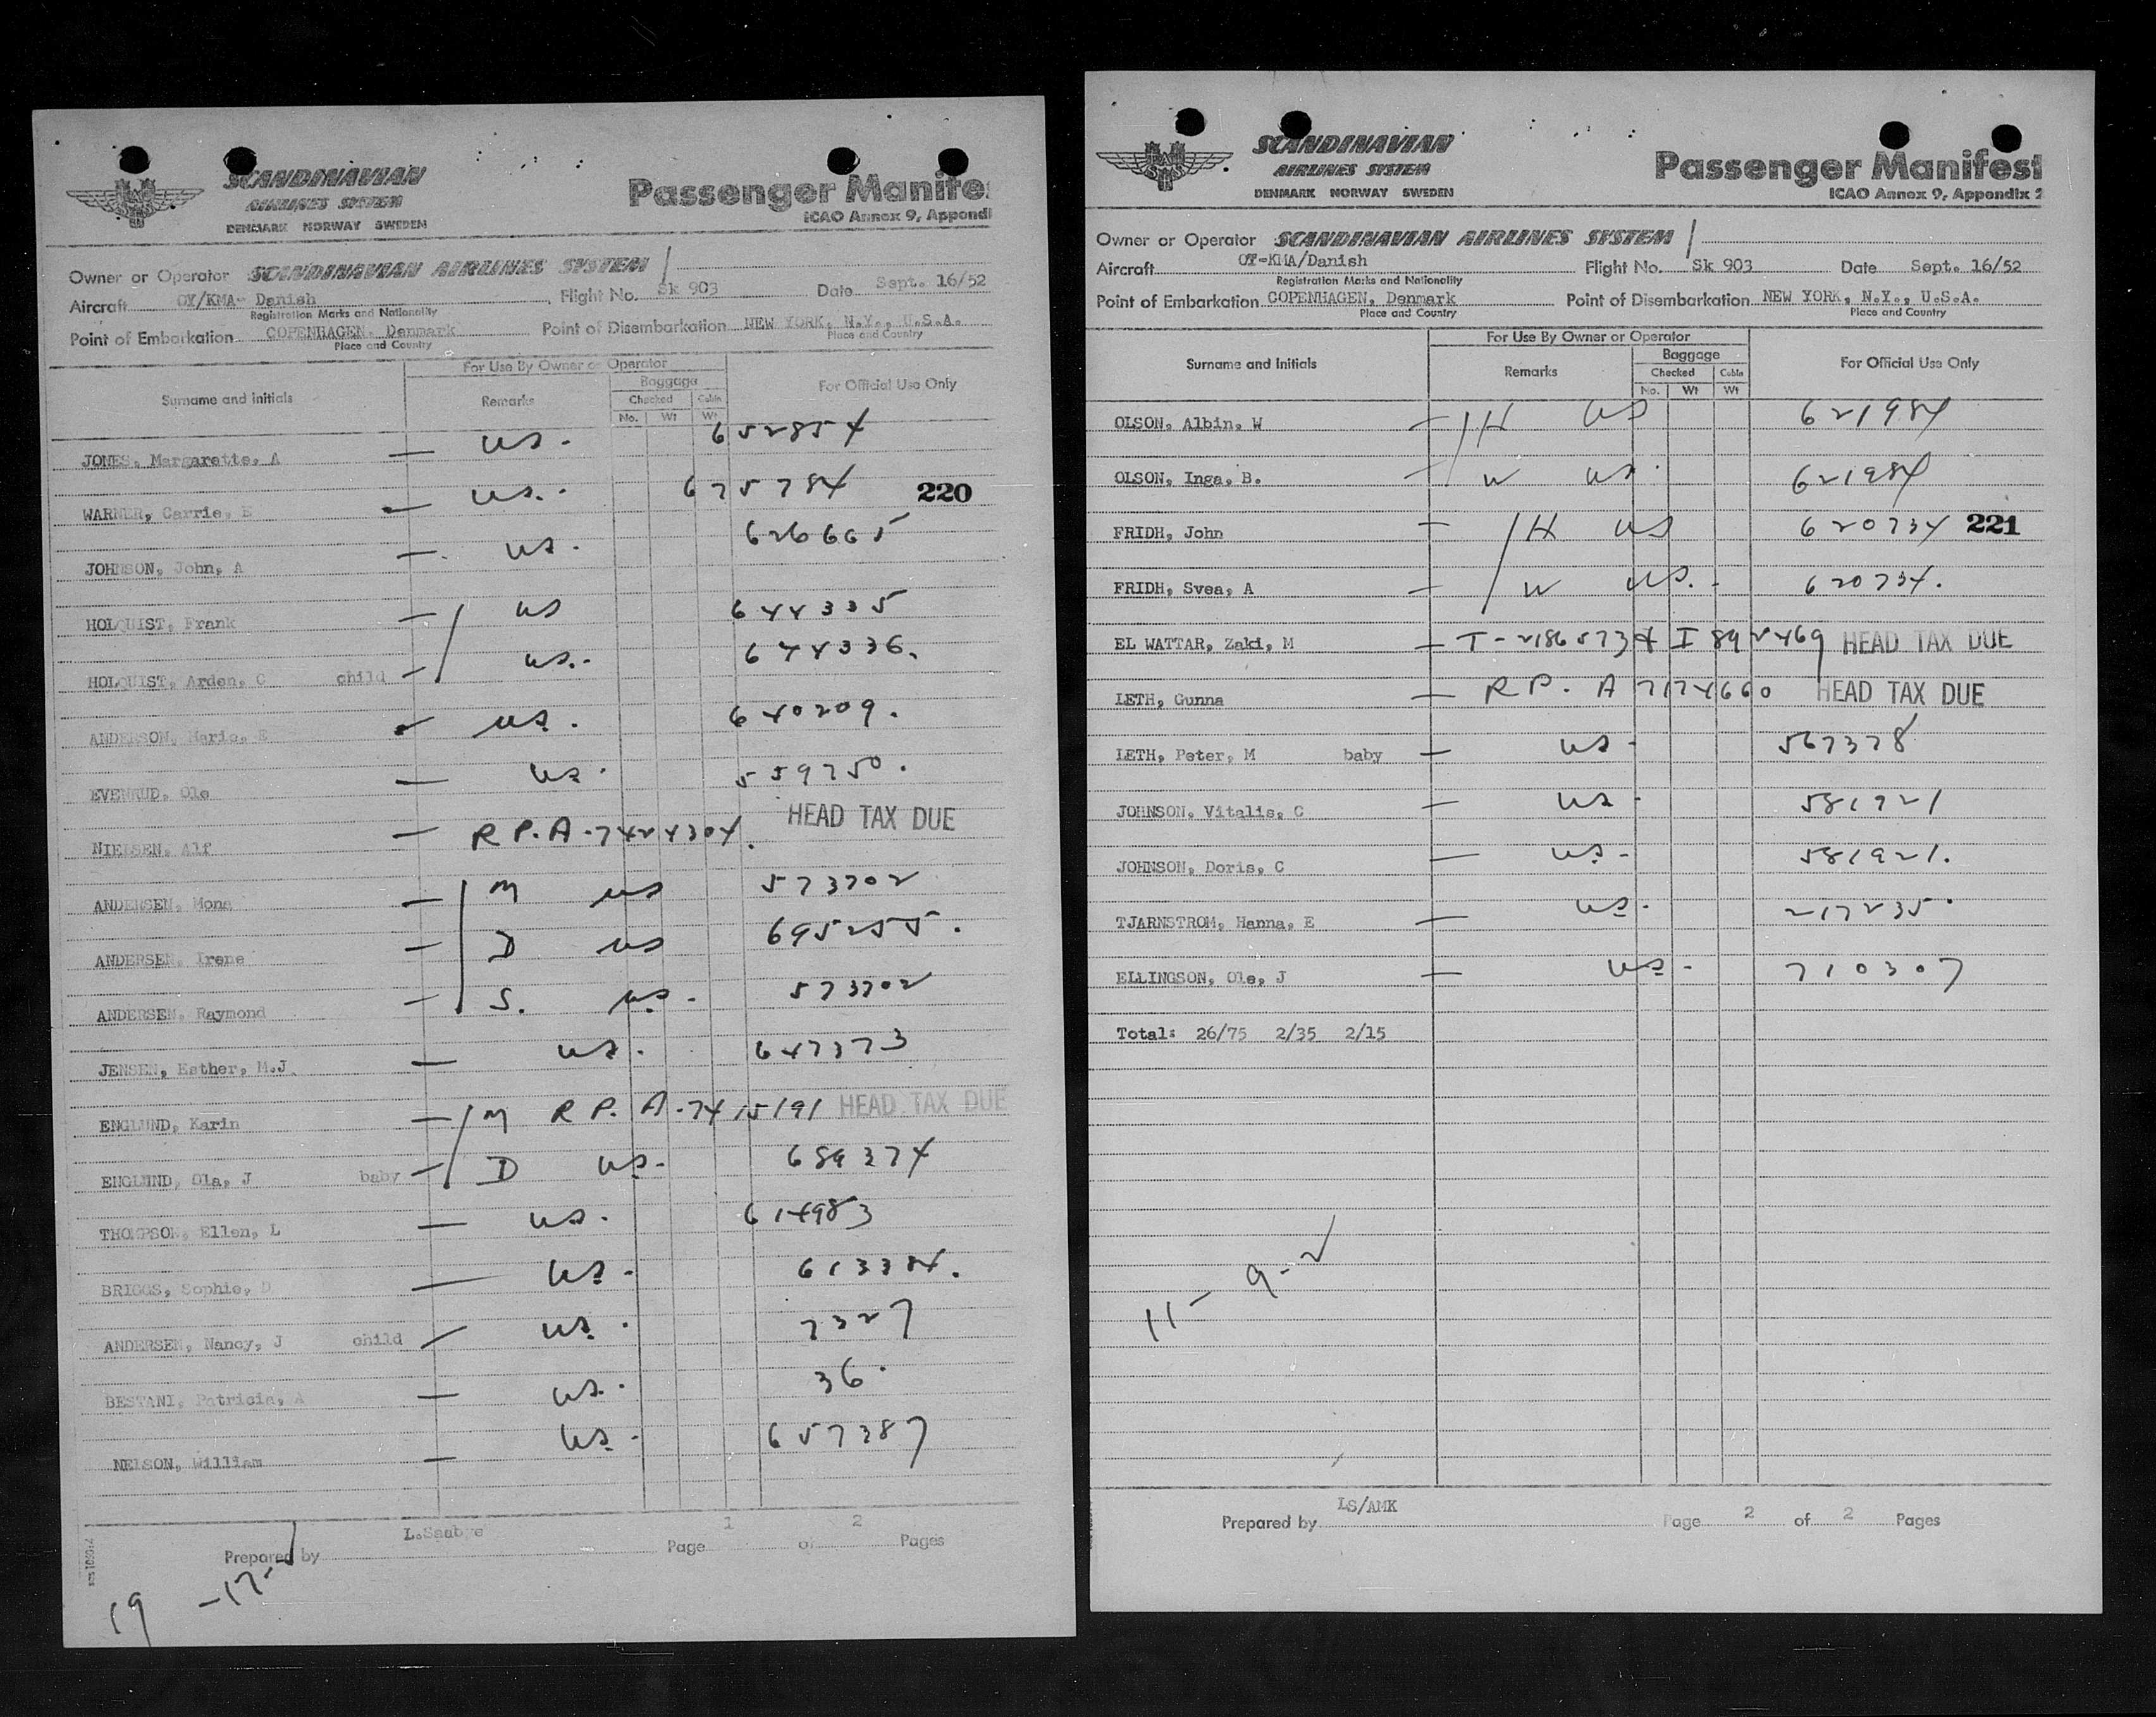 SCANDINAVIAN
AIRLINES SYSTEM
DENMARK NORWAY SWEDEN
Passenger Manifes
ICAO Annex 9, Appendi
Owner or Operator SCANDINAVIAN AIRLINES SYSTEM
Aircraft OY/KMA- Danish Flight No. Sk 903 Date Sept. 16/52
Registration Marks and Nationality
Point of Embarkation COPENHAGEN, Denmark Point of Disembarkation NEW YORK, N.Y., U.S.A.
Place and Country Place and Country
For Use By Owner or Operator
Surname and initials Remarks Baggage For Official Use Only
Checked Cabin
No. Wt Wt
JONES, Margarette, A — US. 652854
WARNER, Carrie, E — US. 675784 220
JOHNSON, John, A — US. 626665
HOLQUIST, Frank — US 644335
HOLQUIST, Arden, C child — US. 644336.
ANDERSON, Marie, E — US. 640209.
EVENRUD, Ole — US. 559750.
NIELSEN, Alf — R P. A-7424304. HEAD TAX DUE
ANDERSEN, Mona — M US 573702
ANDERSEN, Irene — D US 695255.
ANDERSEN, Raymond — S. US. 573702
JENSEN, Esther, M.J. — US. 647373
ENGLUND, Karin — M R P. A-7415191 HEAD TAX DUE
ENGLUND, Ola, J baby — D US. 689374
THOMPSON, Ellen, L — US. 614983
BRIGGS, Sophie, D — US. 613384.
ANDERSEN, Nancy, J child — US. 7327
BESTANI, Patricia, A — US. 36.
NELSON, William — US. 657387
Prepared by L.Saabye Page 1 of 2 Pages
19 -17-2
SCANDINAVIAN
AIRLINES SYSTEM
DENMARK NORWAY SWEDEN
Passenger Manifest
ICAO Annex 9, Appendix 2
Owner or Operator SCANDINAVIAN AIRLINES SYSTEM
Aircraft OY-KMA/Danish Flight No. Sk 903 Date Sept. 16/52
Registration Marks and Nationality
Point of Embarkation COPENHAGEN, Denmark Point of Disembarkation NEW YORK, N.Y., U.S.A.
Place and Country Place and Country
For Use By Owner or Operator
Surname and Initials Remarks Baggage For Official Use Only
Checked Cabin
No. Wt Wt
OLSON, Albin, W — H US 621984
OLSON, Inga, B. — W US. 621984
FRIDH, John — H US 620734 221
FRIDH, Svea, A — W US. 620734.
EL WATTAR, Zaki, M — T-2186573 4 I 892469 HEAD TAX DUE
LETH, Gunna — R P. A 7174660 HEAD TAX DUE
LETH, Peter, M baby — US. 567378
JOHNSON, Vitalis, C — US. 581921
JOHNSON, Doris, C — US. 581921.
TJARNSTROM, Hanna, E — US. 217235.
ELLINGSON, Ole, J — US. 710307
Total: 26/75 2/35 2/15
11 - 9-2
Prepared by LS/AMK Page 2 of 2 Pages